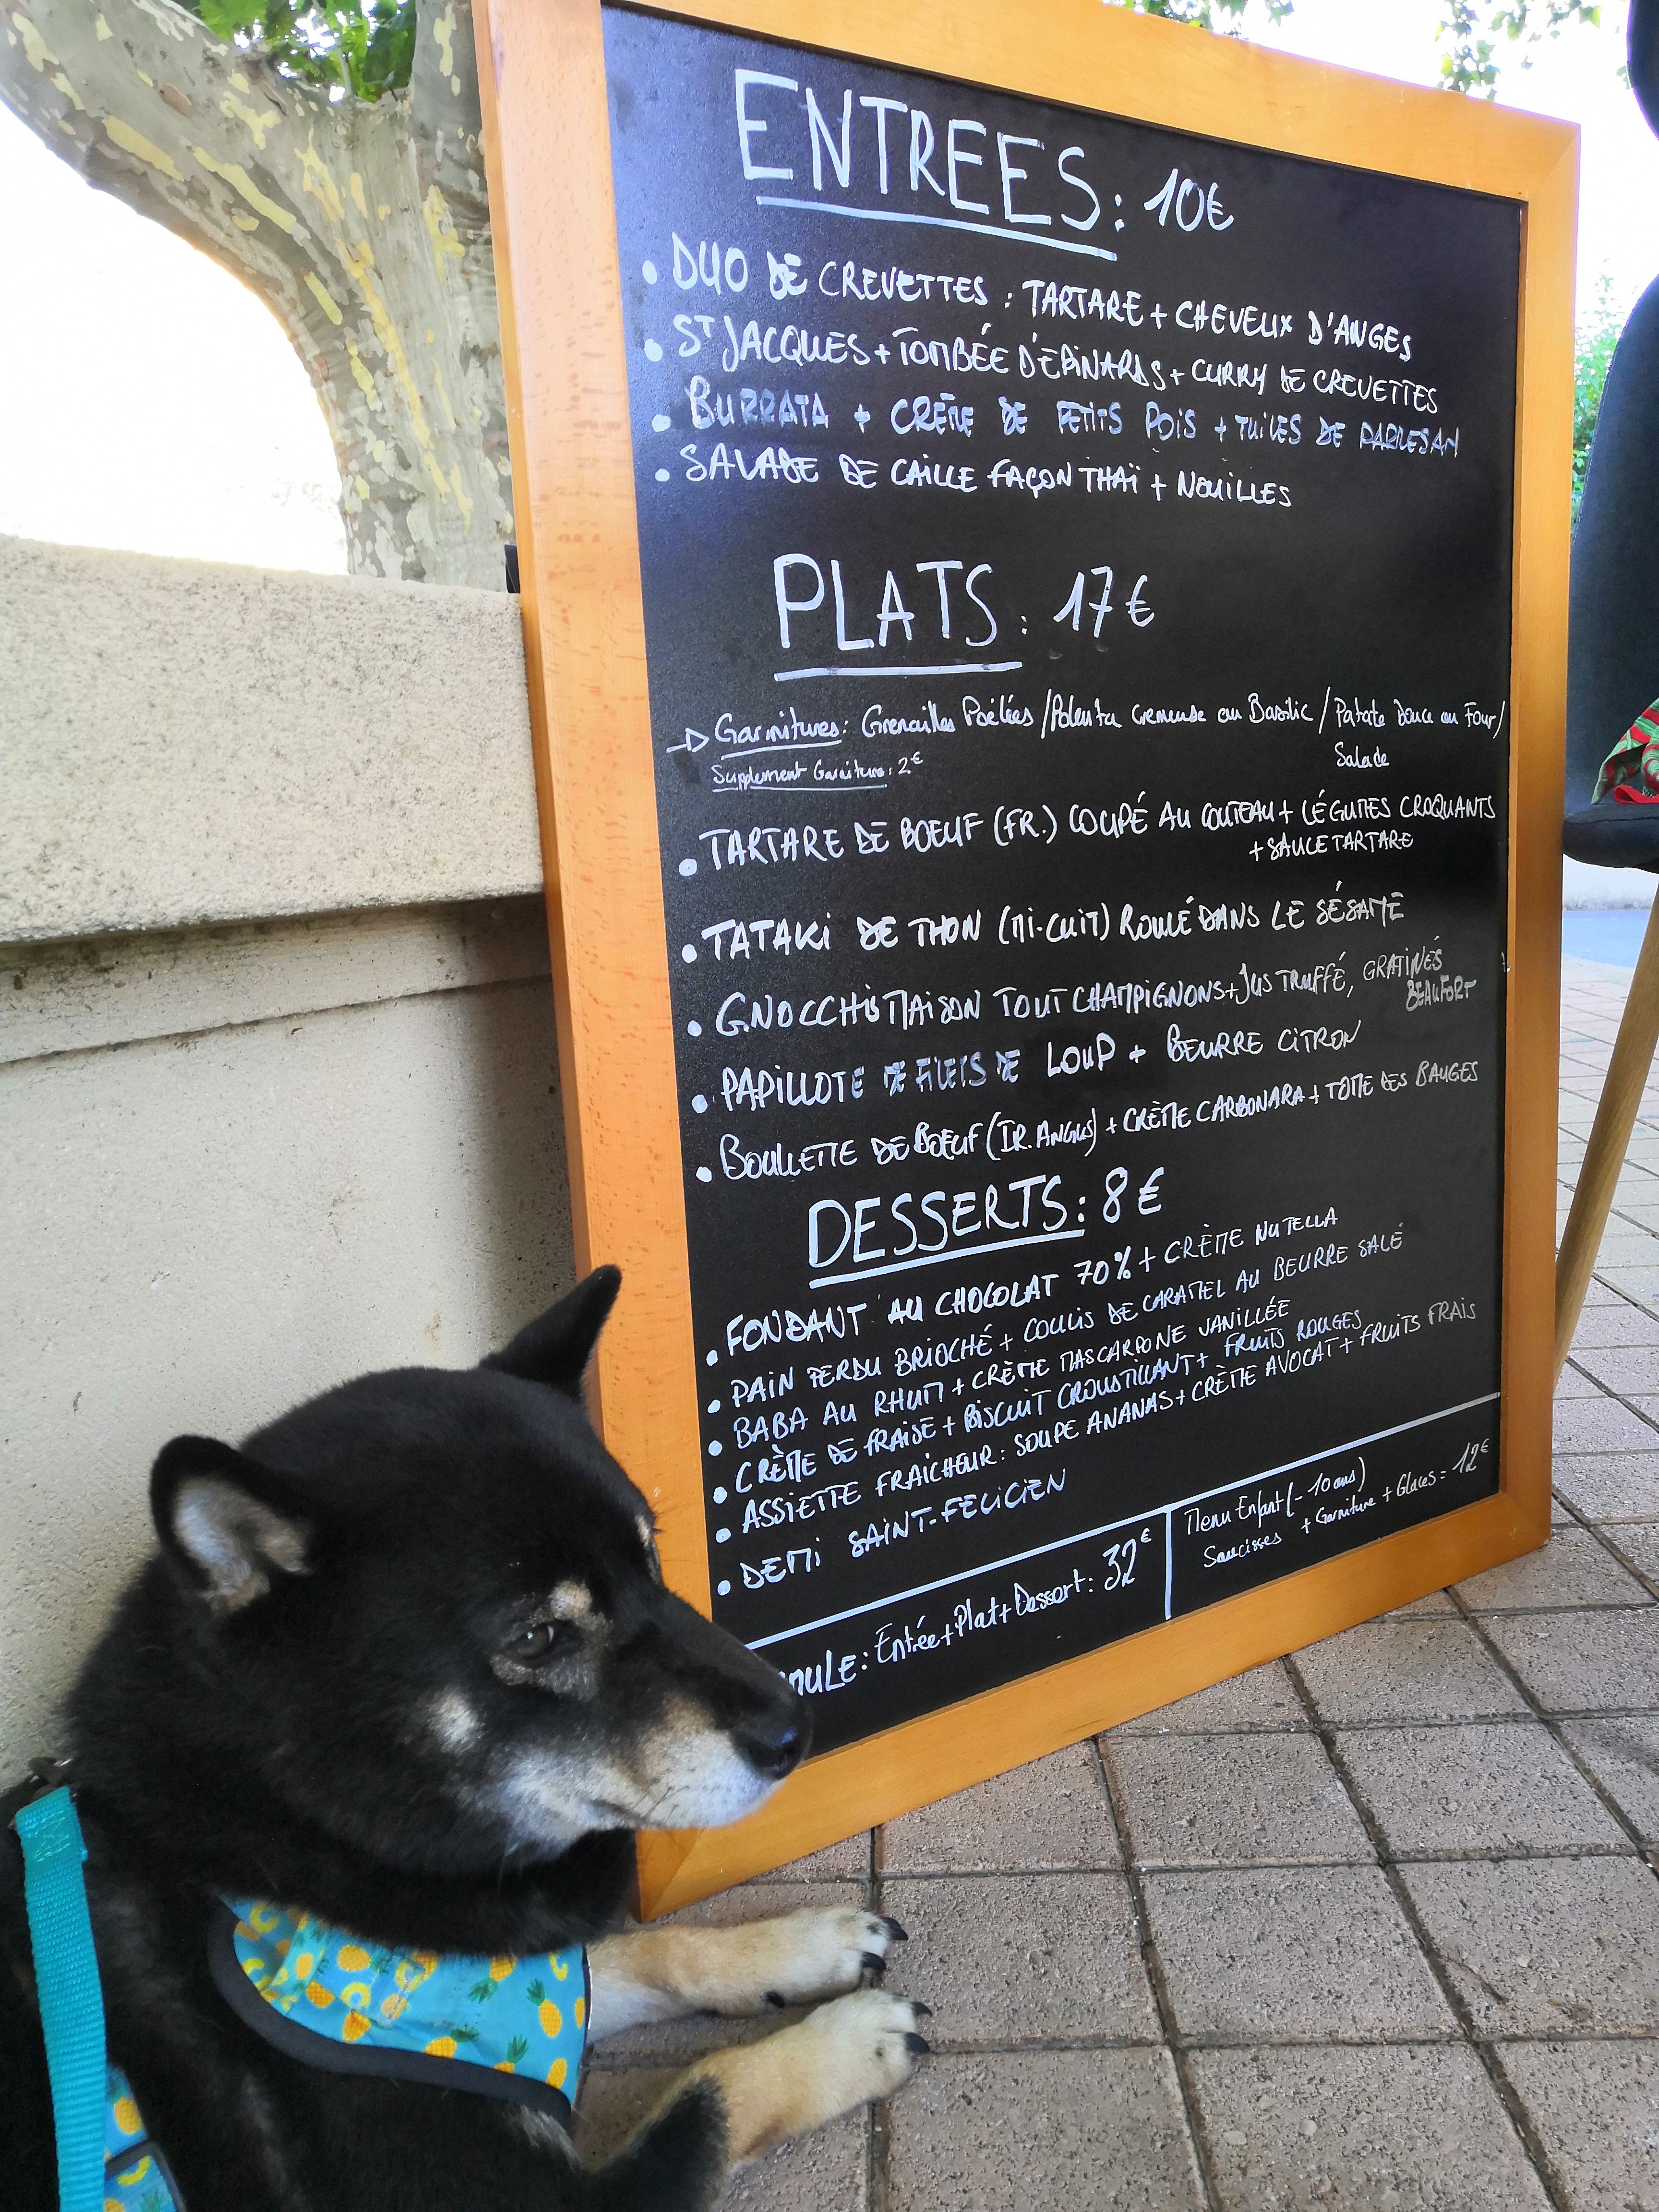 ENTREES: 10€
• DUO DE CREVETTES : TARTARE + CHEVEUX D'ANGES
• ST JACQUES + TOMBÉE D'EPINARDS + CURRY DE CREVETTES
• BURRATA + CRÈME DE PETITS POIS + TUILES DE PARMESAN
• SALADE DE CAILLE FAÇON THAÏ + NOUILLES
PLATS: 17€
→ Garnitures: Grenailles Poêlées / Polenta cremeuse au Basilic / Patate Douce au Four/
Salade
Supplement Garniture: 2€
• TARTARE DE BOEUF (FR.) COUPÉ AU COUTEAU + LÉGUMES CROQUANTS
+ SAUCE TARTARE
• TATAKI DE THON (MI-CUIT) ROULÉ DANS LE SÉSAME
• GNOCCHIS MAISON TOUT CHAMPIGNONS + JUS TRUFFÉ, GRATINÉS
BEAUFORT
• PAPILLOTE DE FILETS DE LOUP + BEURRE CITRON
• BOULLETTE DE BOEUF (IR. ANGUS) + CRÈME CARBONARA + TOME DES BAUGES
DESSERTS: 8€
• FONDANT AU CHOCOLAT 70% + CRÈME NUTELLA
• PAIN PERDU BRIOCHÉ + COULIS DE CARAMEL AU BEURRE SALÉ
• BABA AU RHUM + CRÈME MASCARPONE VANILLÉE
• CRÈME DE FRAISE + BISCUIT CROUSTILLANT + FRUITS ROUGES
• ASSIETTE FRAICHEUR: SOUPE ANANAS + CRÈME AVOCAT + FRUITS FRAIS
• DEMI SAINT-FELICIEN
MULE: Entrée+Plat+Dessert: 32€
Menu Enfant (- 10 ans)
Saucisses + Garniture + Glaces = 12€